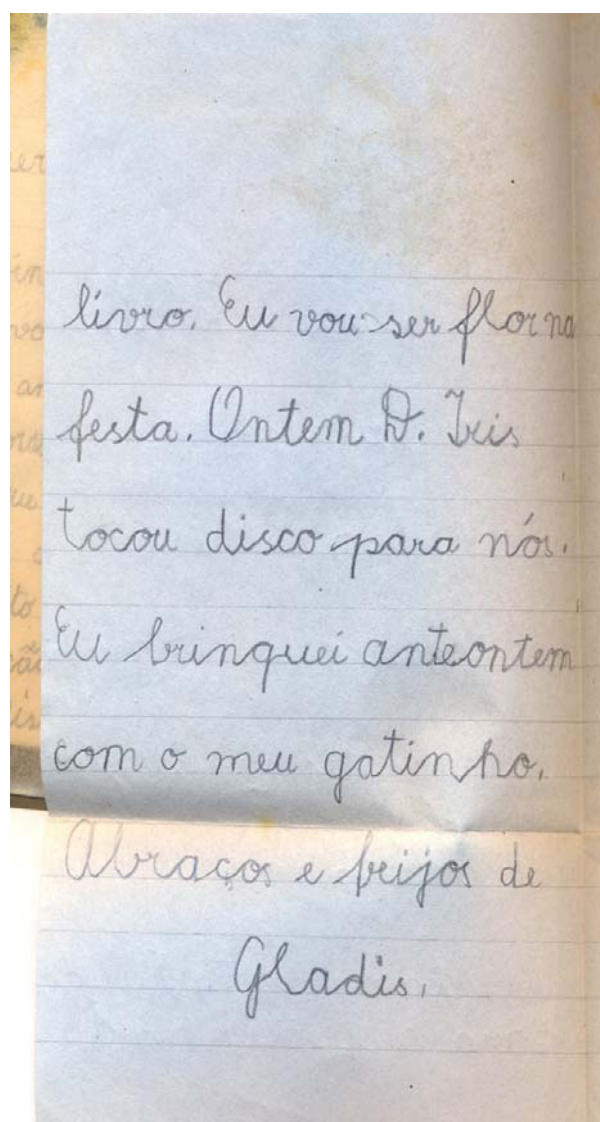 livro. Eu vou ser flor na
festa. Ontem D. Iris
tocou disco para nós.
Eu brinquei anteontem
com o meu gatinho.
Abraços e beijos de
Gladis.